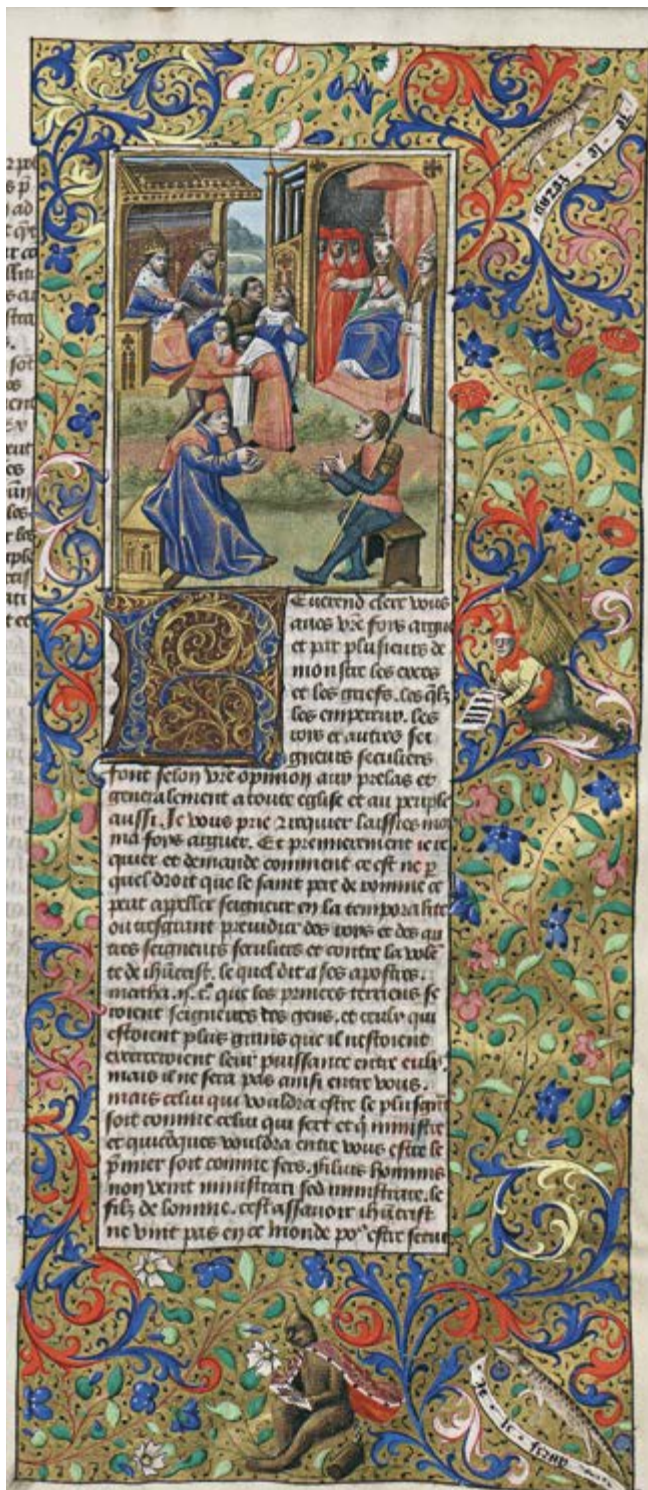 Je le feray
Euerend clerc vous
aues vrē fors argue
et par plusieurs de
monstre les exces
et les griefs. les qlz
les empereurs. les
rois et autres sei
gneurs seculiers
font selon vrē opinion aux prelas et
generalement a toute eglise et au peuple
aussi. Je vous prie requier laissies moy
ma fors arguer. Et premierement ie re
quier et demande comment ce est ne p
quel droit que le saint pere de romme ce
peut appeller seigneur en la temporalite
ou tresgrant preiudice des rois et des au
tres seigneurs seculiers et contre la volē
te de ihūcrist. le quel dit a ses apostres.
mathei. c̄. que les princes terriens se
roient seigneurs des gens. et ceulx qui
estoient plus grans que il nestoient
exerceroient leur puissance entre eulx.
mais il ne sera pas ainsi entre vous.
mais celui qui vouldra estre le plus grāt
soit comme celui qui sert et q̄ ministre
et quicōques vouldra entre vous estre le
p̄mier soit comme sers. filius hominis
non venit ministrari sed ministrare. le
filz de lomme. cest assauoir ihūcrist
ne vint pas en ce monde po² estre serui
Je le feray